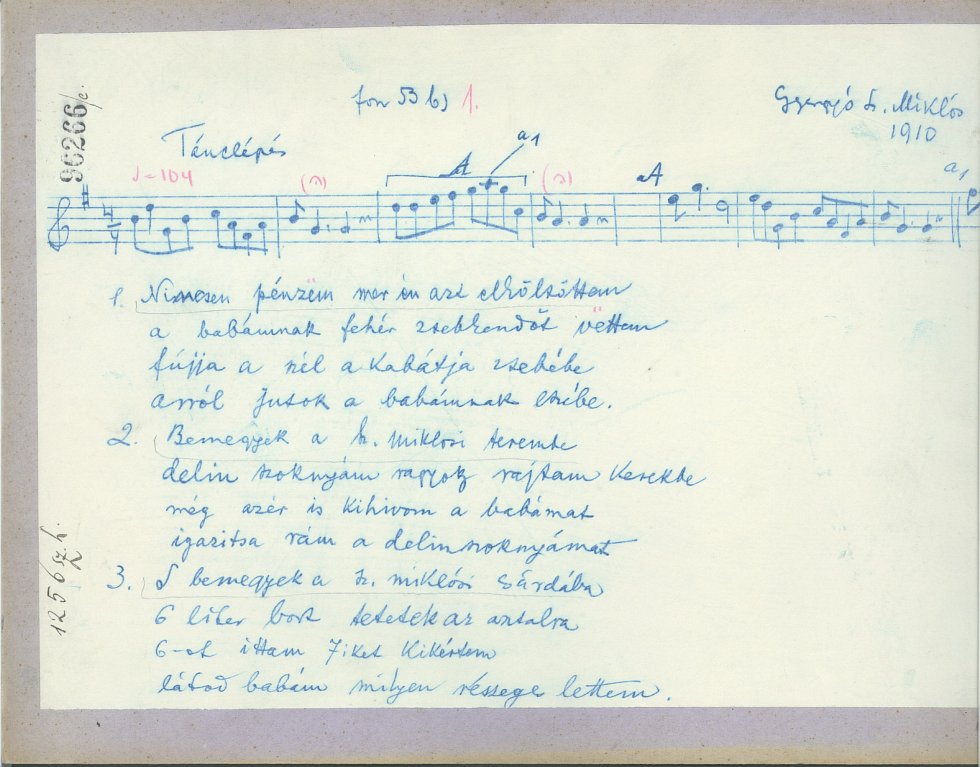 fon 53 b) 1.
Gyergyó sz. Miklós
1910
96266/c.
Tánclépés
♩=104
A
a1
A
a1
4/4
1. Nincsen pénzëm mer én azt elköltöttem
a babámnak fehér zsebkendőt vëttem
fújja a szél a kabátja zsebébe
arról jutok a babámnak eszébe.
2. Bemegyek a sz. miklósi terembe
delin szoknyám ragyog rajtam kerekbe
még azér is kihivom a babámat
igazitsa rám a delinszoknyámat
3. S bemegyek a sz. miklósi sárdába
6 liter bort tetetek az asztalra
6-ot ittam 7iket kikértem
látod babám milyen részege lettem.
1256 sz. h.